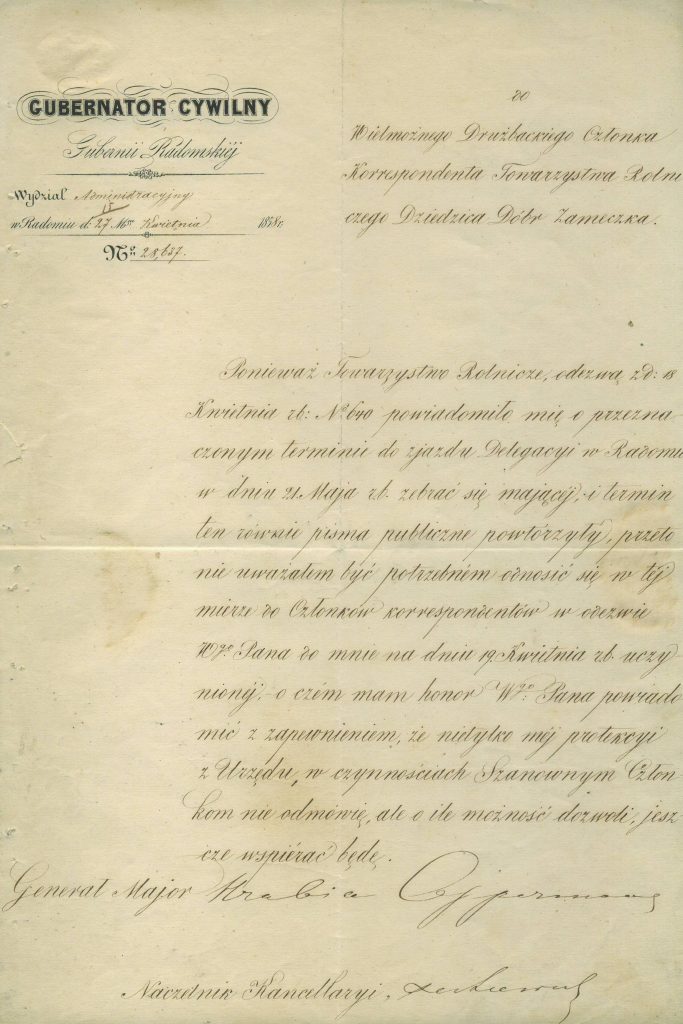 GUBERNATOR CYWILNY
Gubernii Radomskiéj
Wydział Administracyjny
II
w Radomiu d. 27 Mca Kwietnia 1858 r.
No 28,637.
do
Wielmożnego Drużbackiego Członka
Korrespondenta Towarzystwa Rolni
czego Dziedzica Dóbr Zameczka.
Ponieważ Towarzystwo Rolnicze, odezwą z d: 18
Kwietnia rb: No 640 powiadomiło mię o przezna
czonym terminie do zjazdu Delegacyi w Radomiu
w dniu 21 Maja rb. zebrać się mającéj, i termin
ten równie pisma publiczne powtórzyły, przeto
nie uważałem być potrzebném odnosić się w téj
mierze do Członków korrespondentów w odezwie
Wgo Pana do mnie na dniu 19 Kwietnia rb. uczy
nionéj, - o czém mam honor Wgo Pana powiado
mić z zapewnieniem, że nietylko méj protekcyi
z Urzędu, w czynnościach Szanownym Człon
kom nie odmówię, ale o ile możność dozwoli, jesz
cze wspiérać będę.
Generał Major Hrabia
Naczelnik Kancellaryi,